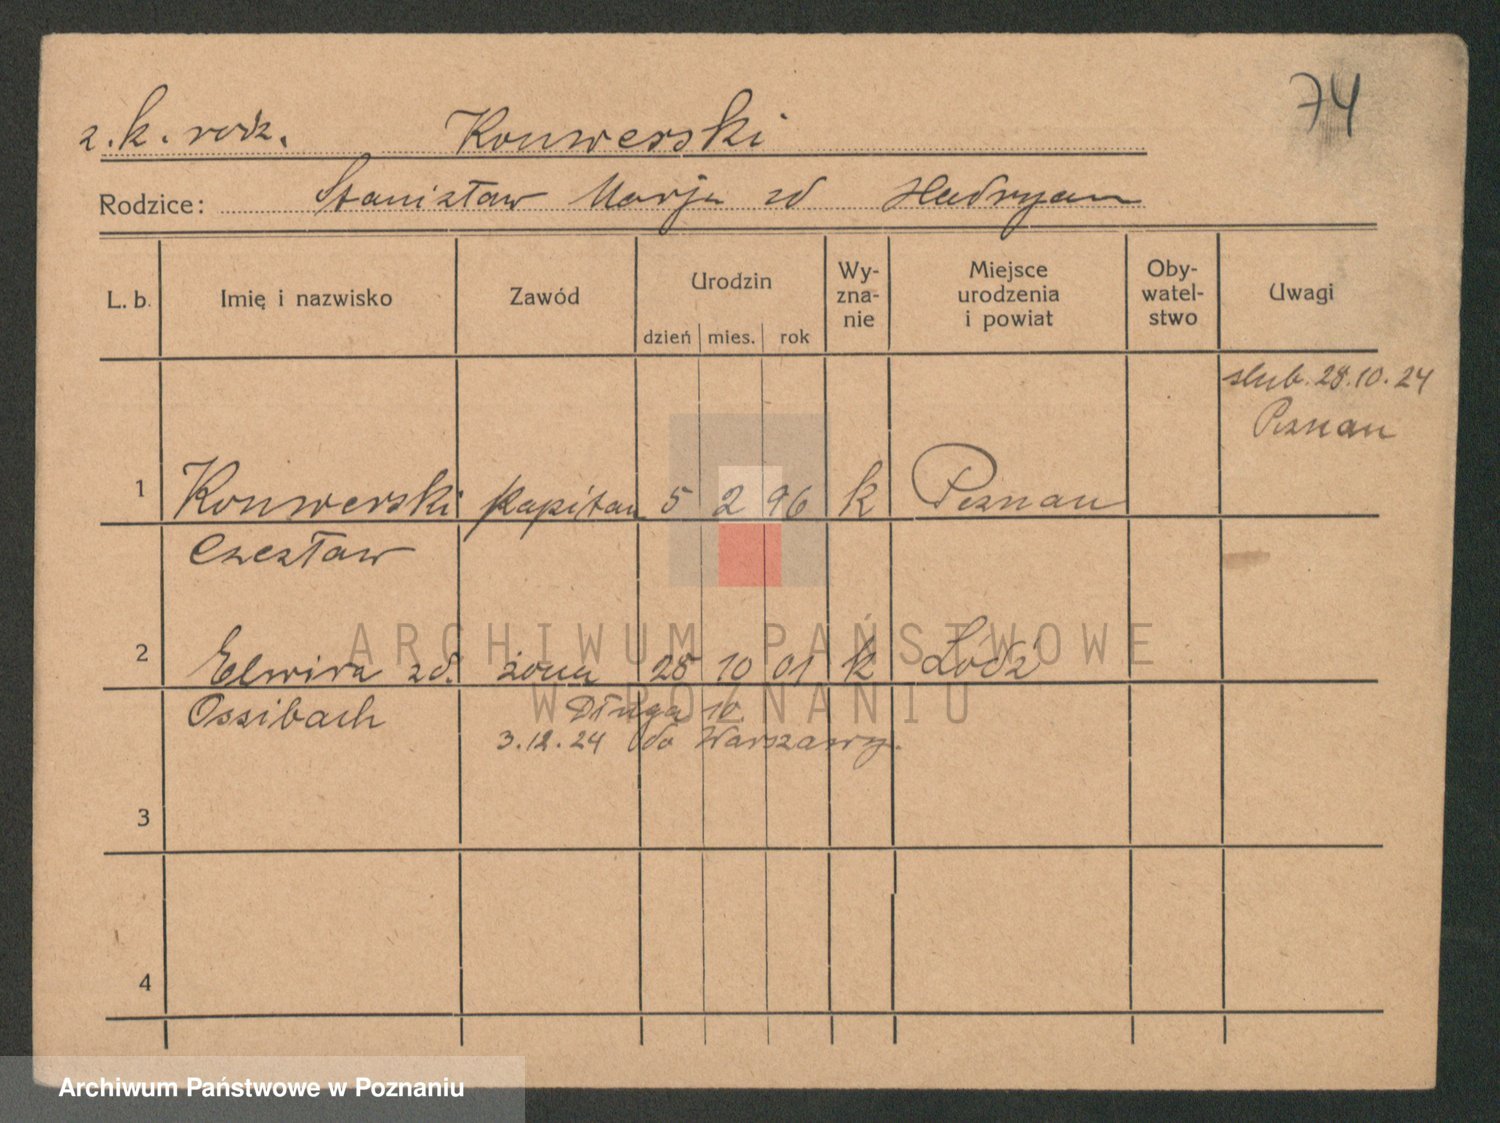 74
z. k. rodz. Konwerski
Rodzice: Stanisław Marja zd Hadryan
L. b. Imię i nazwisko Zawód Urodzin dzień mies. rok Wy-zna-nie Miejsce urodzenia i powiat Oby-watel-stwo Uwagi
slub. 28.10.24
Poznan
1 Konwerski kapitan 5 2 96 k Poznan
Czesław
ARCHIWUM PAŃSTWOWE
2 Elwira zd. żona 28 10 01 k Łódź
W POZNANIU
Ossibach Długa 10.
3.12.24 do Warszawy.
3
4
Archiwum Państwowe w Poznaniu